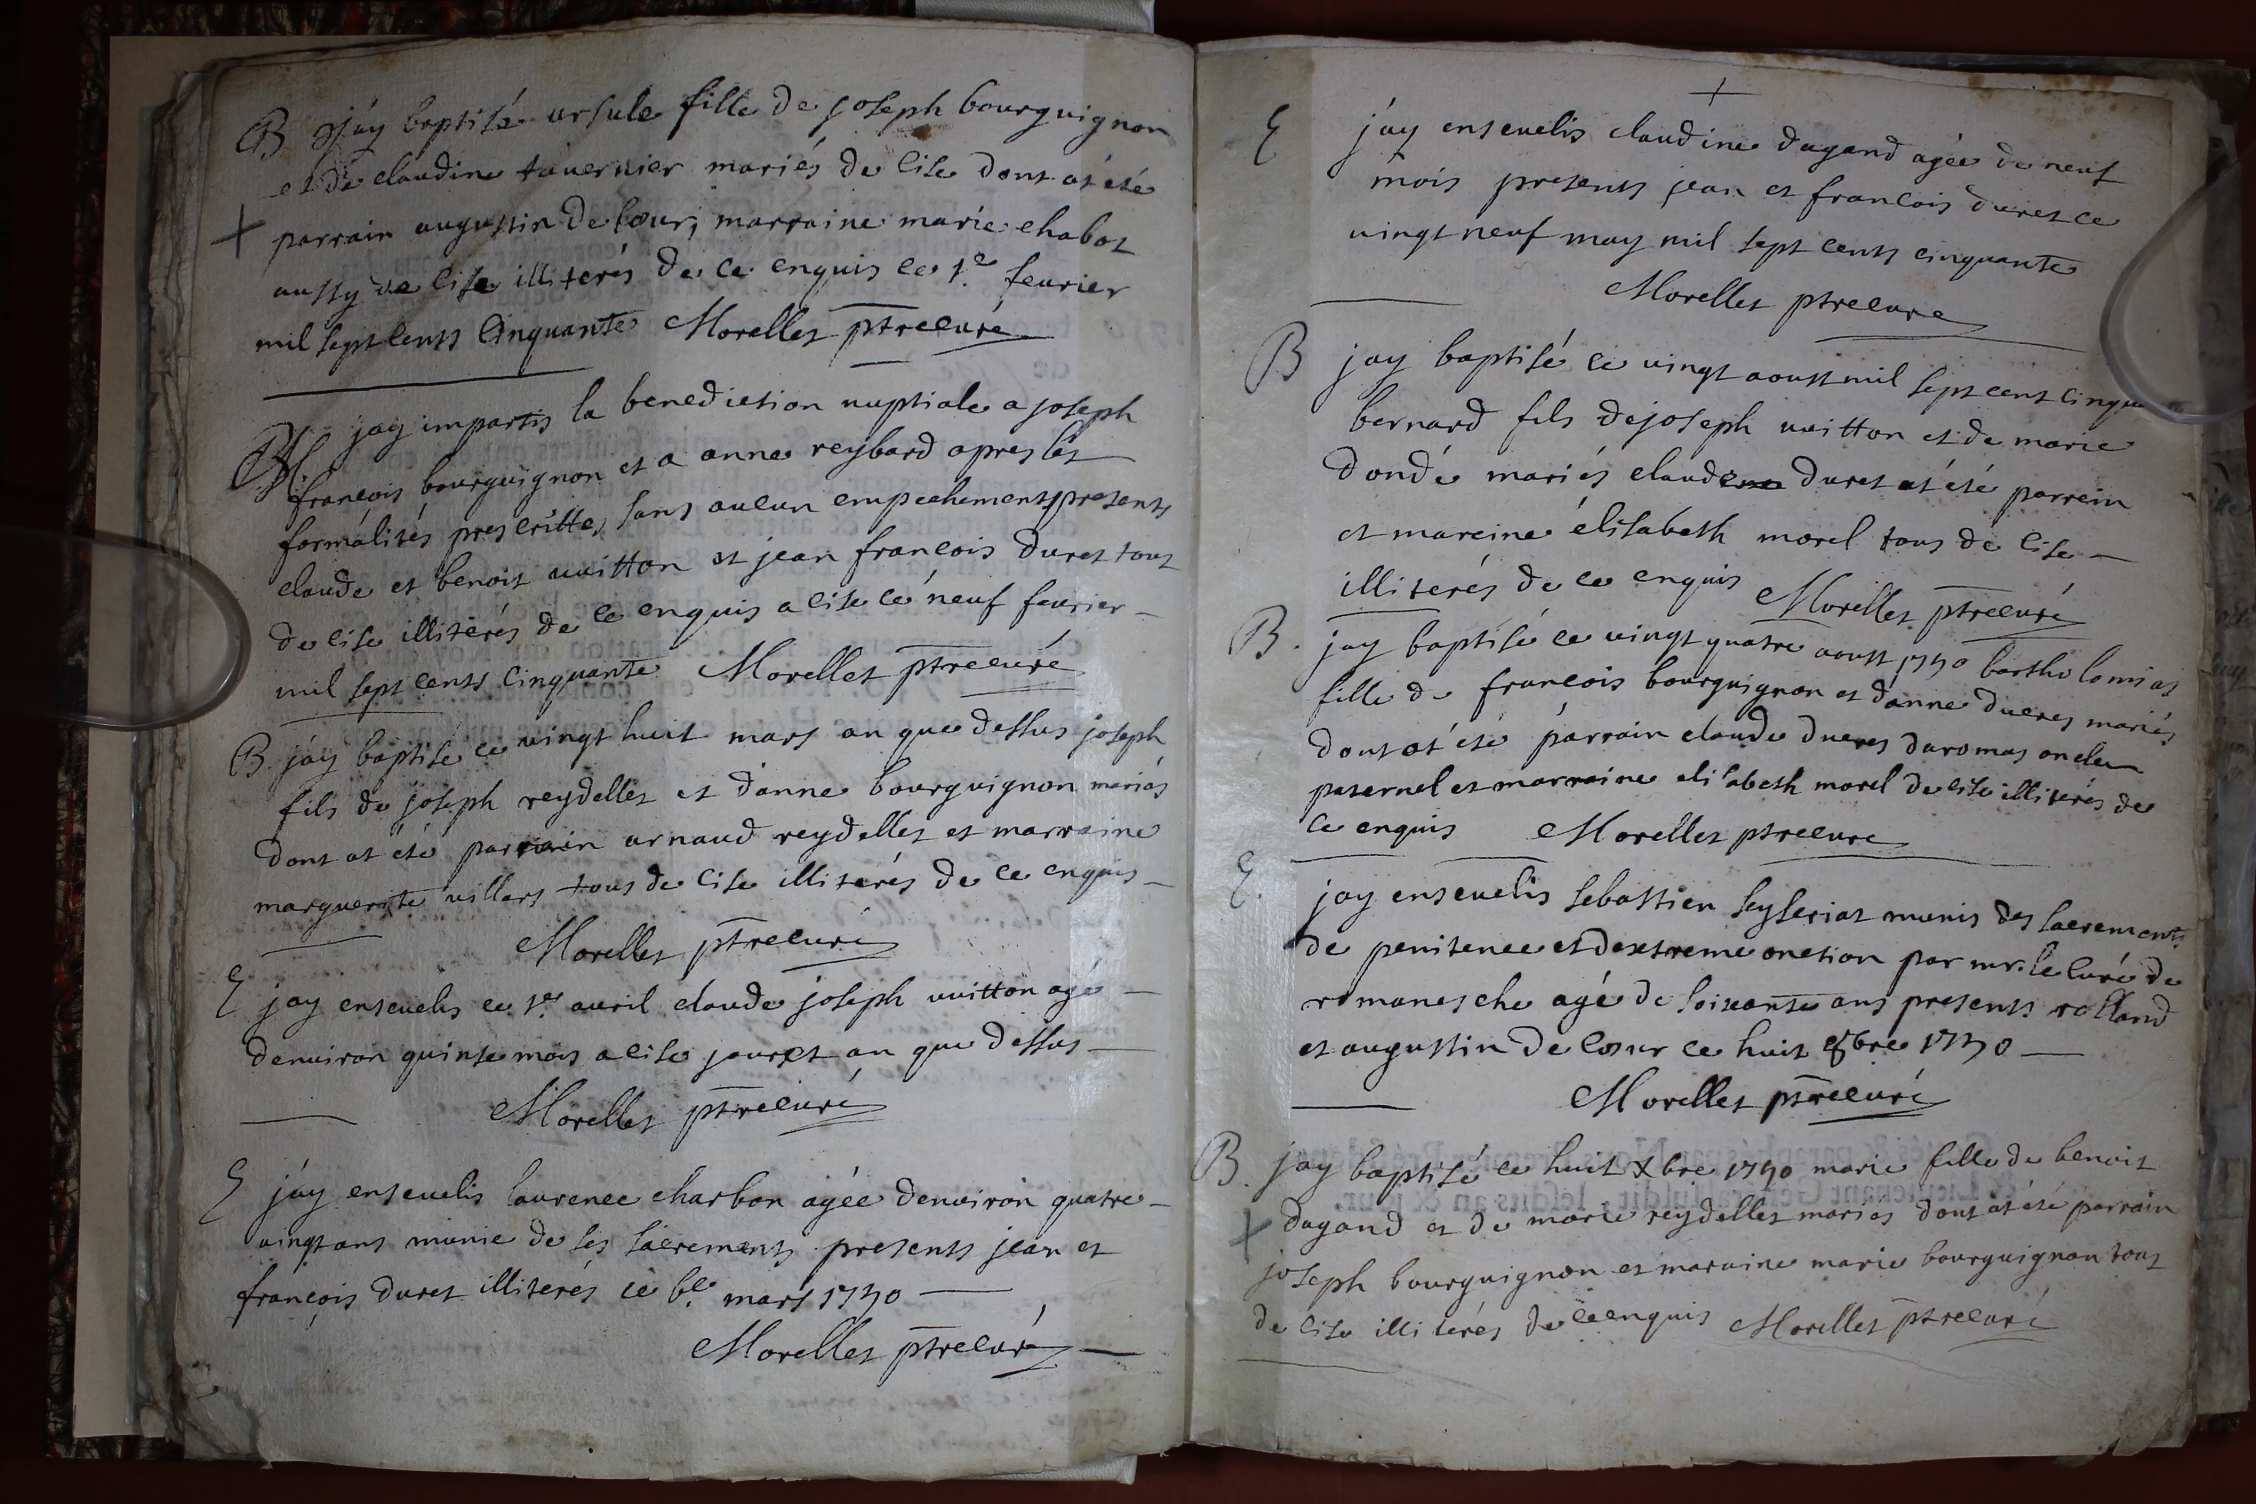 B jáy baptisé ursule fille de joseph bourguignon
et de claudine tavernier mariés de cise dont at été
+ parrain augustin de cour, marraine marie chabot
aussy de cise illiterés de ce enquis ce 1e feurier
mil sept cents Cinquante Morellet ptre curé
M jay impartis la benediction nuptiale a joseph
françois bourguignon et a anne reybard apres les
formalités prescrittes sans aucun empechements presents
claude et benoit uuitton et jean françois duret tous
de cise illiterés de ce enquis a cise ce neuf feurier
mil sept cents cinquante Morellet ptre curé
B jáy baptisé ce vingt huit mars an que dessus joseph
fils de joseph reydellet et d'anne bourguignon mariés
dont at été parrain arnaud reydellet et marraine
marguerite villars tous de cise illiterés de ce enquis
Morellet ptre curé
E jay enseuelis ce 1er auril claude joseph uuitton agé
denuiron quinse mois a cise jour et an que dessus
Morellet ptre curé
E jáy enseuelis laurence charbon agée denuiron quatre
vingt ans munie de ses sacrements presents jean et
françois duret illiterés ce mars 1750
Morellet ptre curé
+
E jáy enseuelis claudine dugand agée de neuf
mois presents jean et françois duret ce
vingt neuf may mil sept cents cinquante
Morellet ptre curé
B jay baptisé ce vingt aoust mil sept cent
bernard fils de joseph uuitton et de marie
dondé mariés claude duret at été parrein
et mareine élisabeth morel tous de cise
illiterés de ce enquis Morellet ptre curé
B. jay baptisé ce vingt quatre aoust 1750
fille de françois bourguignon et d'anne mariés
dont at été párrain claude daromas oncle
paternel et marraine elisabeth morel de cise illiterés de
ce enquis Morellet ptre curé
E. jay enseuelis sebastien seyseriat munis des sacrements
de penitence et dextreme onction par mr. le curé de
romanesche agé de soixante ans presents rolland
et augustin de cour ce huit 8bre 1750
Morellet ptre curé
B. jay baptisé ce huit Xbre 1750 marie fille de benoit
+ dugand et de marie reydellet mariés dont at été parrain
joseph bourguignon et maraine marie bourguignon tous
de cise illiterés de ce enquis Morellet ptre curé